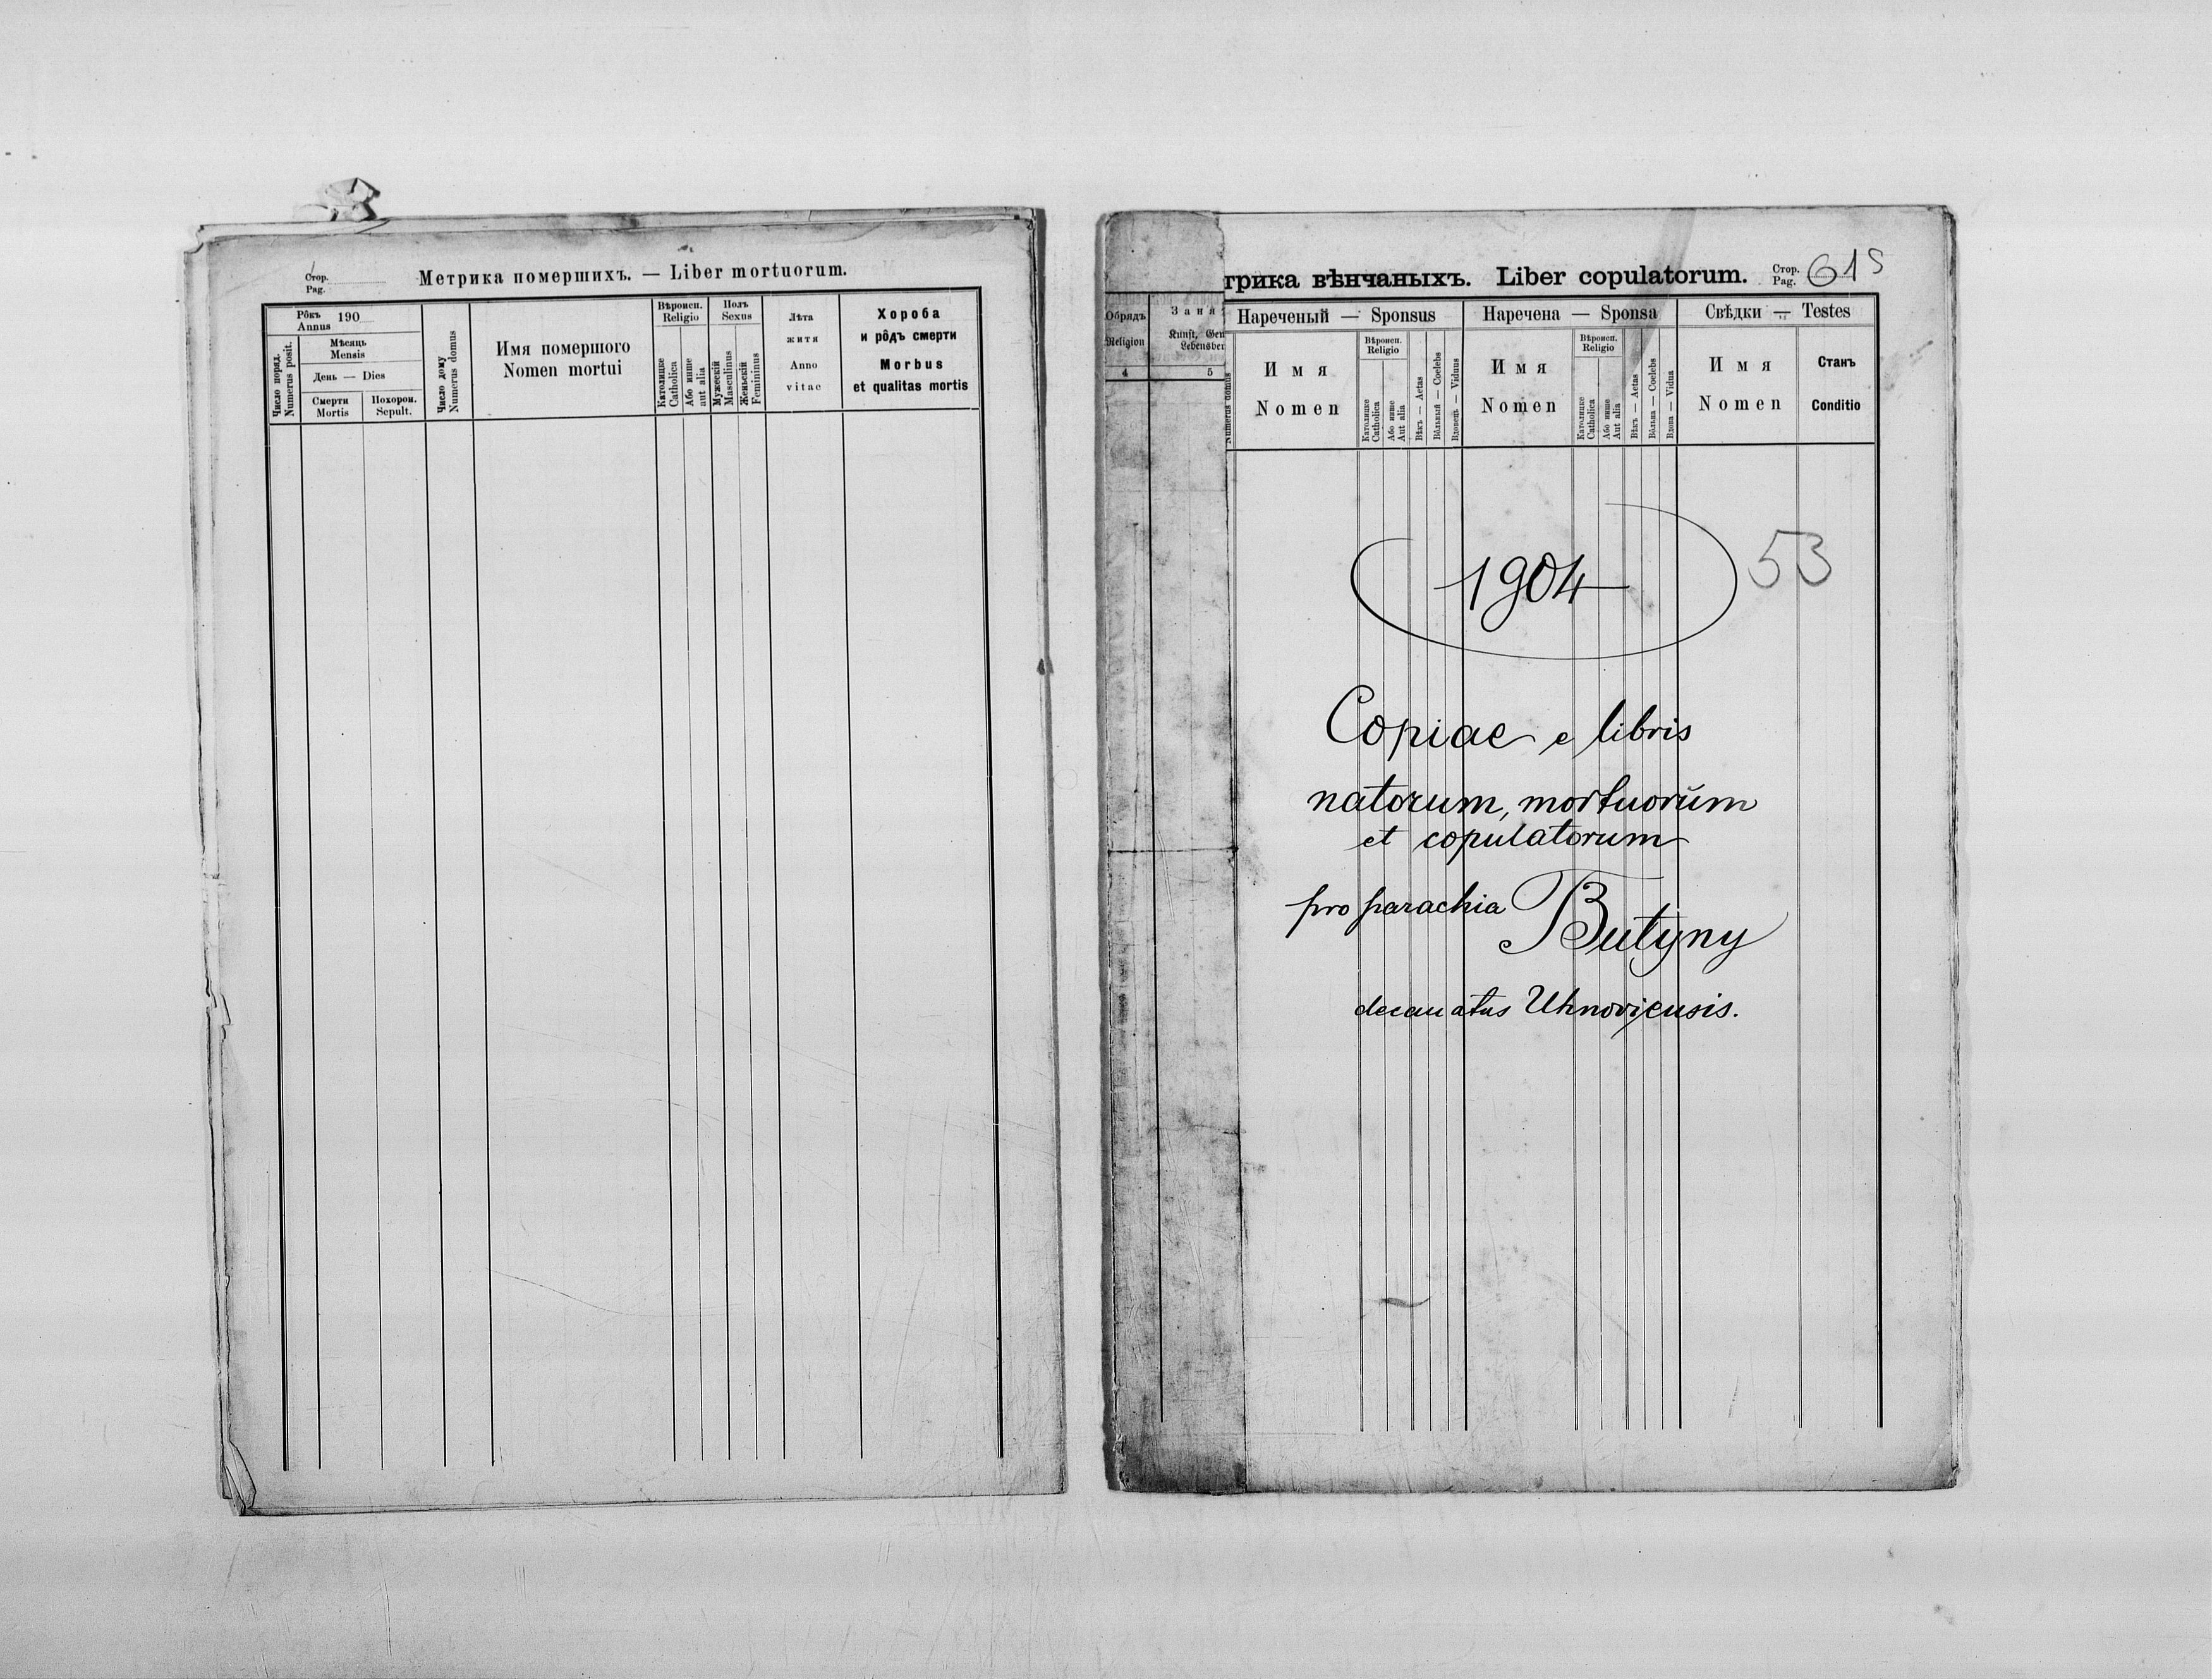 Стор.
Pag.
Метрика помершихъ. — Liber mortuorum.
Рôкъ 190
Annus
Число поряд.
Numerus posit.
Мѣсяць
Mensis
День — Dies
Смерти
Mortis
Похорон.
Sepult.
Число дому
Numerus domus
Имя помершого
Nomen mortui
Вѣроисп.
Religio
Католицке
Catholica
Або инше
aut alia
Полъ
Sexus
Мужескій
Masculinus
Женьскій
Femininus
Лѣта
житя
Anno
vitae
Хороба
и рôдъ смерти
Morbus
et qualitas mortis
Обрядъ
Religion
4
Заня
Kunst, Gew
Lebensber
5
трика вѣнчаныхъ. Liber copulatorum.
Стор.
Pag.
615
Numerus domus
Нареченый — Sponsus
Имя
Nomen
Вѣроисп.
Religio
Католицке
Catholica
Або инше
Aut alia
Вѣкъ — Aetas
Вôльный — Coelebs
Вдовець — Viduus
Наречена — Sponsa
Имя
Nomen
Вѣроисп.
Religio
Католицке
Catholica
Або инше
Aut alia
Вѣкъ — Aetas
Вôльна — Coelebs
Вдова — Vidua
Свѣдки — Testes
Имя
Nomen
Станъ
Conditio
1904
53
Copiae e libris
natorum, mortuorum
et copulatorum
pro parachia Butyny
decanatus Uhnoviensis.